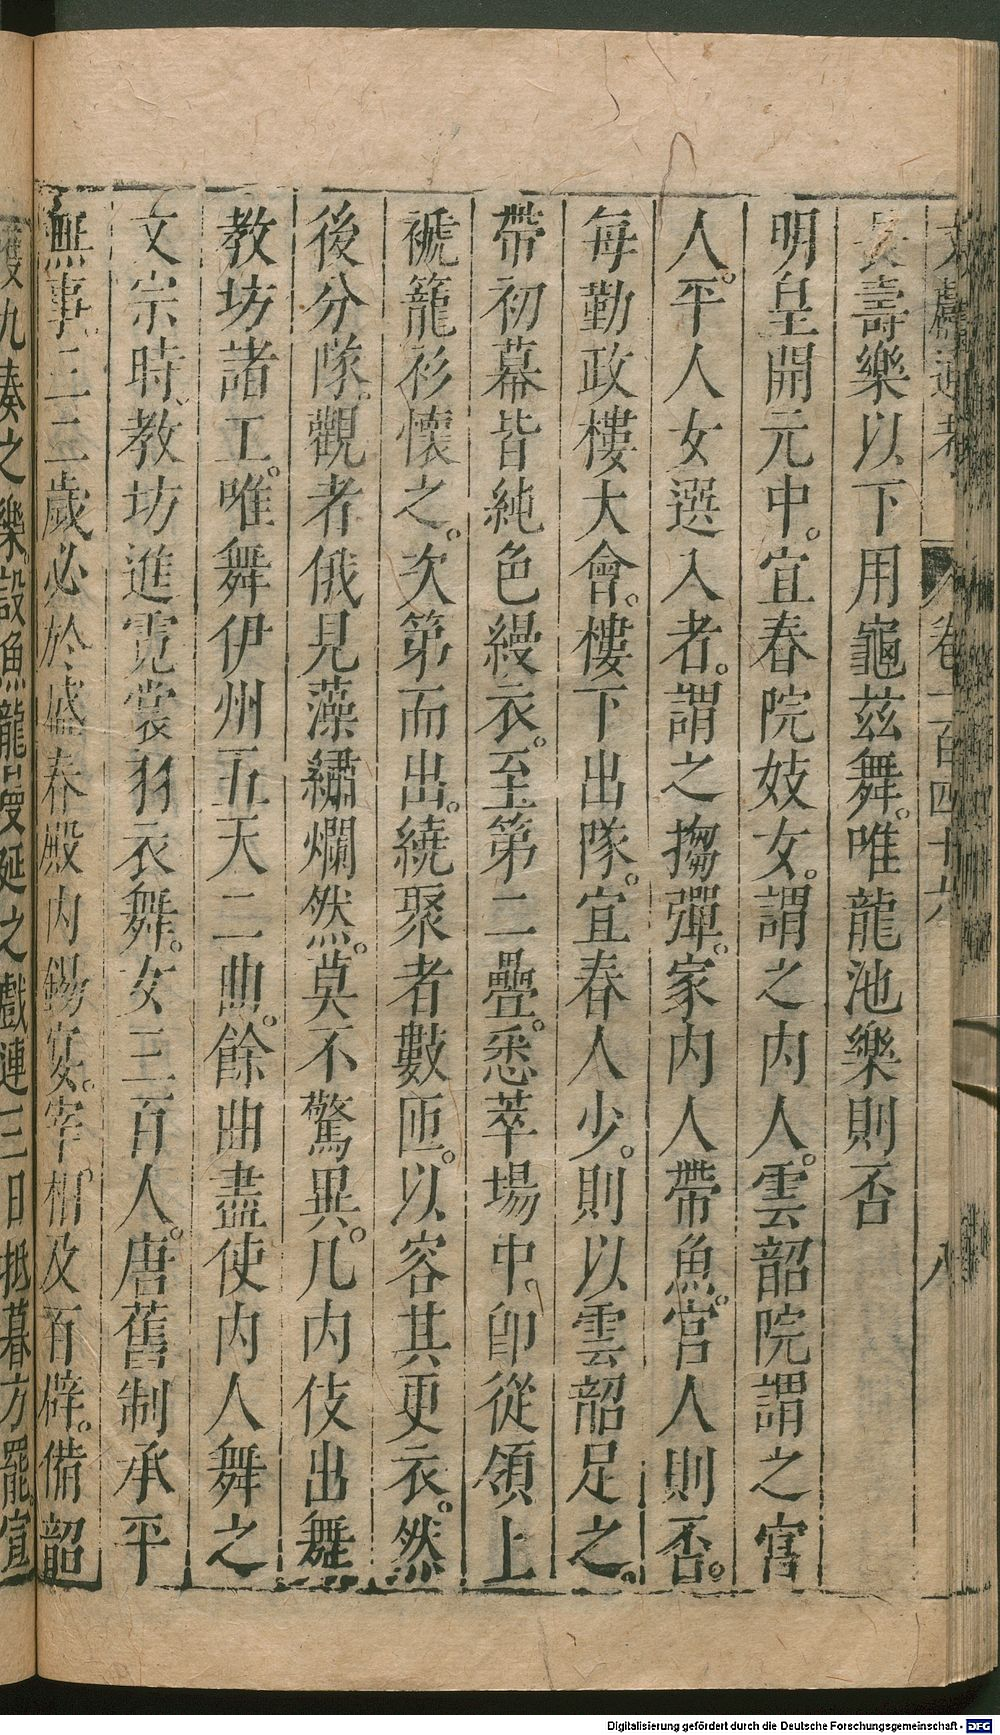 文獻通考 卷一百四十六 八
長壽樂以下用龜兹舞。唯龍池樂則否
明皇開元中。宜春院妓女。謂之内人。雲韶院謂之宮
人。平人女選入者。謂之搊彈。家内人帶魚。宮人則否。
每勤政樓大會。樓下出隊。宜春人少。則以雲韶足之。
帶初幕皆純色縵衣。至第二疊。悉萃場中。卽從領上
褫籠衫懷之。次第而出。繞聚者數匝。以容其更衣。然
後分隊。觀者俄見藻繡爛然。莫不驚異。凡内伎出舞
教坊諸工。唯舞伊州五天二曲。餘曲盡使内人舞之
文宗時。教坊進霓裳羽衣舞。女三百人。唐舊制承平
無事。三二歲必於盛春殿内錫宴。宰相及百辟。備韶
濩九奏之樂。設魚龍曼延之戲連三日抵暮方罷。宣
Digitalisierung gefördert durch die Deutsche Forschungsgemeinschaft - DFG